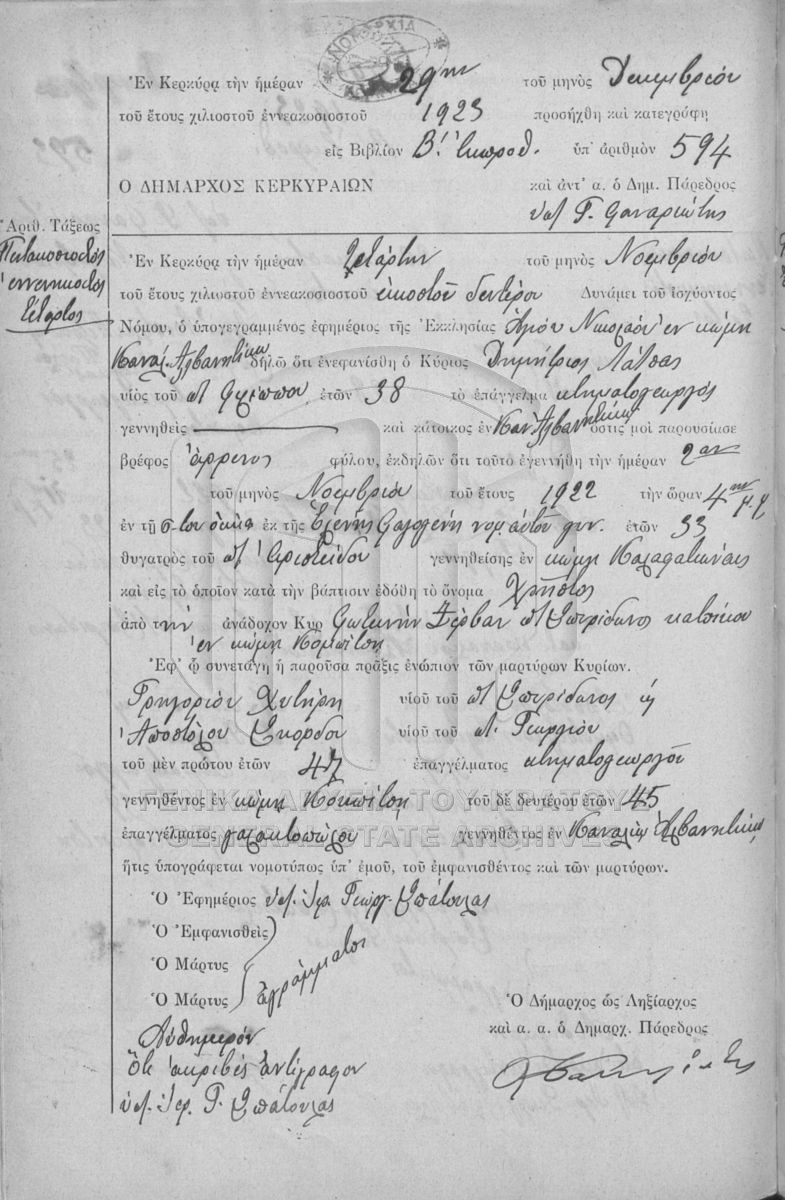 ΝΟΜΑΡΧΙΑ
Ἐν Κερκύρᾳ τὴν ἡμέραν 29ην τοῦ μηνὸς Δεκεμβρίου
τοῦ ἔτους χιλιοστοῦ ἐννεακοσιοστοῦ 1923 προσήχθη καὶ κατεγράφη
εἰς Βιβλίον Β! Ἐκπροθ. ὑπ' ἀριθμὸν 594
Ο ΔΗΜΑΡΧΟΣ ΚΕΡΚΥΡΑΙΩΝ καὶ ἀντ' α. ὁ Δημ. Πάρεδρος
Γ. Φαναριώτης
Ἀριθ. Τάξεως
Πεντακοσιοστός
ἐννενηκοστός
τέταρτος
Ἐν Κερκύρᾳ τὴν ἡμέραν τετάρτην τοῦ μηνὸς Νοεμβρίου
τοῦ ἔτους χιλιοστοῦ ἐννεακοσιοστοῦ εἰκοστοῦ δευτέρου Δυνάμει τοῦ ἰσχύοντος
Νόμου, ὁ ὑπογεγραμμένος ἐφημέριος τῆς Ἐκκλησίας Ἁγίου Νικολάου ἐν κώμῃ
Καναλ. Ἀλβανητικα δηλῶ ὅτι ἐνεφανίσθη ὁ Κύριος Δημήτριος Λάτσας
υἱὸς τοῦ ποτ Φιλίππου ἐτῶν 38 τὸ ἐπάγγελμα κτηματογεωργός
γεννηθεὶς καὶ κάτοικος ἐν Καν. Ἀλβανητικα ὅστις μοὶ παρουσίασε
βρέφος ἄρρενος φύλου, ἐκδηλῶν ὅτι τοῦτο ἐγεννήθη τὴν ἡμέραν 2αν
τοῦ μηνὸς Νοεμβρίου τοῦ ἔτους 1922 τὴν ὥραν 4ην μ.μ
ἐν τῇ ἐκ τῆς Ἑλένης νομ. αὐτοῦ γυν. ἐτῶν 33
θυγατρὸς τοῦ ποτ Ἀριστείδου γεννηθείσης ἐν κώμῃ Καλαφατιώναις
καὶ εἰς τὸ ὁποῖον κατὰ τὴν βάπτισιν ἐδόθη τὸ ὄνομα Χρῆστος
ἀπὸ τὴν ἀνάδοχον Κυρ Φωτεινὴν Σέρβαν ποτ Σπυρίδωνος κατοίκου
ἐν κώμῃ Κομπίτσῃ
Ἐφ' ᾧ συνετάγη ἡ παροῦσα πρᾶξις ἐνώπιον τῶν μαρτύρων Κυρίων.
Γρηγορίου Χυτήρη υἱοῦ τοῦ ποτ Σπυρίδωνος
Ἀποστόλου Σκορδου υἱοῦ τοῦ ποτ. Γεωργίου
τοῦ μὲν πρώτου ἐτῶν 47 ἐπαγγέλματος κτηματογεωργοῦ
γεννηθέντος ἐν κώμῃ Κομπίτσῃ τοῦ δὲ δευτέρου ἐτῶν 45
ἐπαγγέλματος γαλακτοπώλου γεννηθέντος ἐν Καναλίων Ἀλβανητικα
ΓΕΝΙΚΑ ΑΡΧΕΙΑ ΤΟΥ ΚΡΑΤΟΥΣ
GENERAL STATE ARCHIVES
ἥτις ὑπογράφεται νομοτύπως ὑπ' ἐμοῦ, τοῦ ἐμφανισθέντος καὶ τῶν μαρτύρων.
Ὁ Ἐφημέριος ὑπ. Ἱερ. Γεώργ. Σπάτουλας
Ὁ Ἐμφανισθεὶς
Ὁ Μάρτυς
Ὁ Μάρτυς
Ἀγράμματοι
Ὁ Δήμαρχος ὡς Ληξίαρχος
καὶ α. α. ὁ Δημαρχ. Πάρεδρος
Αὐθημερόν
Ὅτι ἀκριβές ἀντίγραφον
ὑπ. Ἱερ. Γ. Σπάτουλας